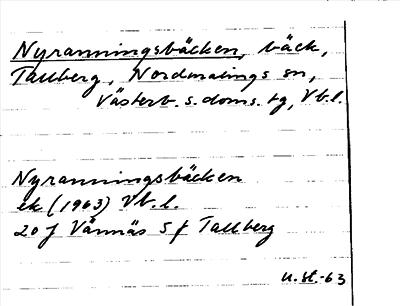 Nyranningsbäcken, bäck,
Tallberg, Nordmalings sn,
Västerb. s. doms. tg, Vb. l.
Nyranningsbäcken
ek (1963) Vb. l.
20 J Vännäs 5 f Tallberg
u. st. -63